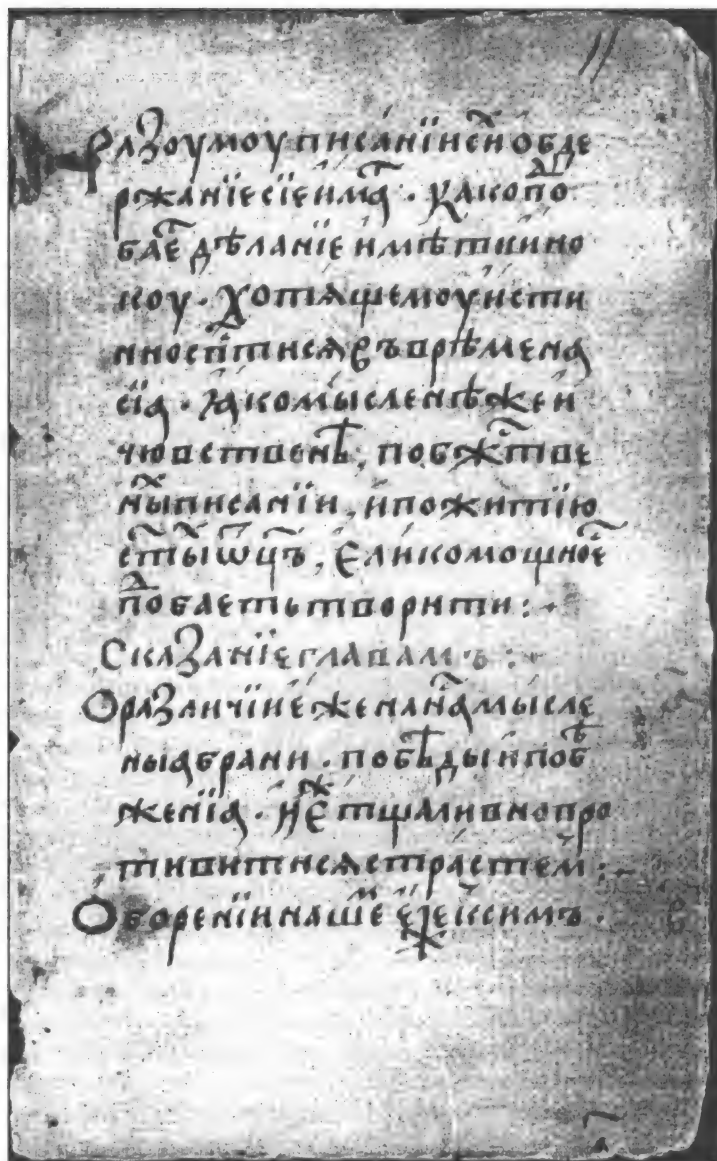 разоумоу писанїи сн҃ обде
ржанїе сїе имᲂ҆т . како по
баеⷮ дѣланїе имѣти ино
коу . хотѧщемоу исти
нно спⷭ҇тисѧ въ времена
сїа . ꙗко мысленѣ же и
чювственѣ , по бжⷭтве
ныⷯ писанїи , и по житїю
ст҃ыⷯ ѡц҃ъ , єлико мощноⷷ
поⷣбаеть творити :
Сказанїе главамъ :
О разлнчїи еже на на мысле
ныа брани . побѣды и побѣ
женїа . и єⷤ тщаливно про
тивитисѧ страстем :
О боренїи нашеⷨ єже к симъ .